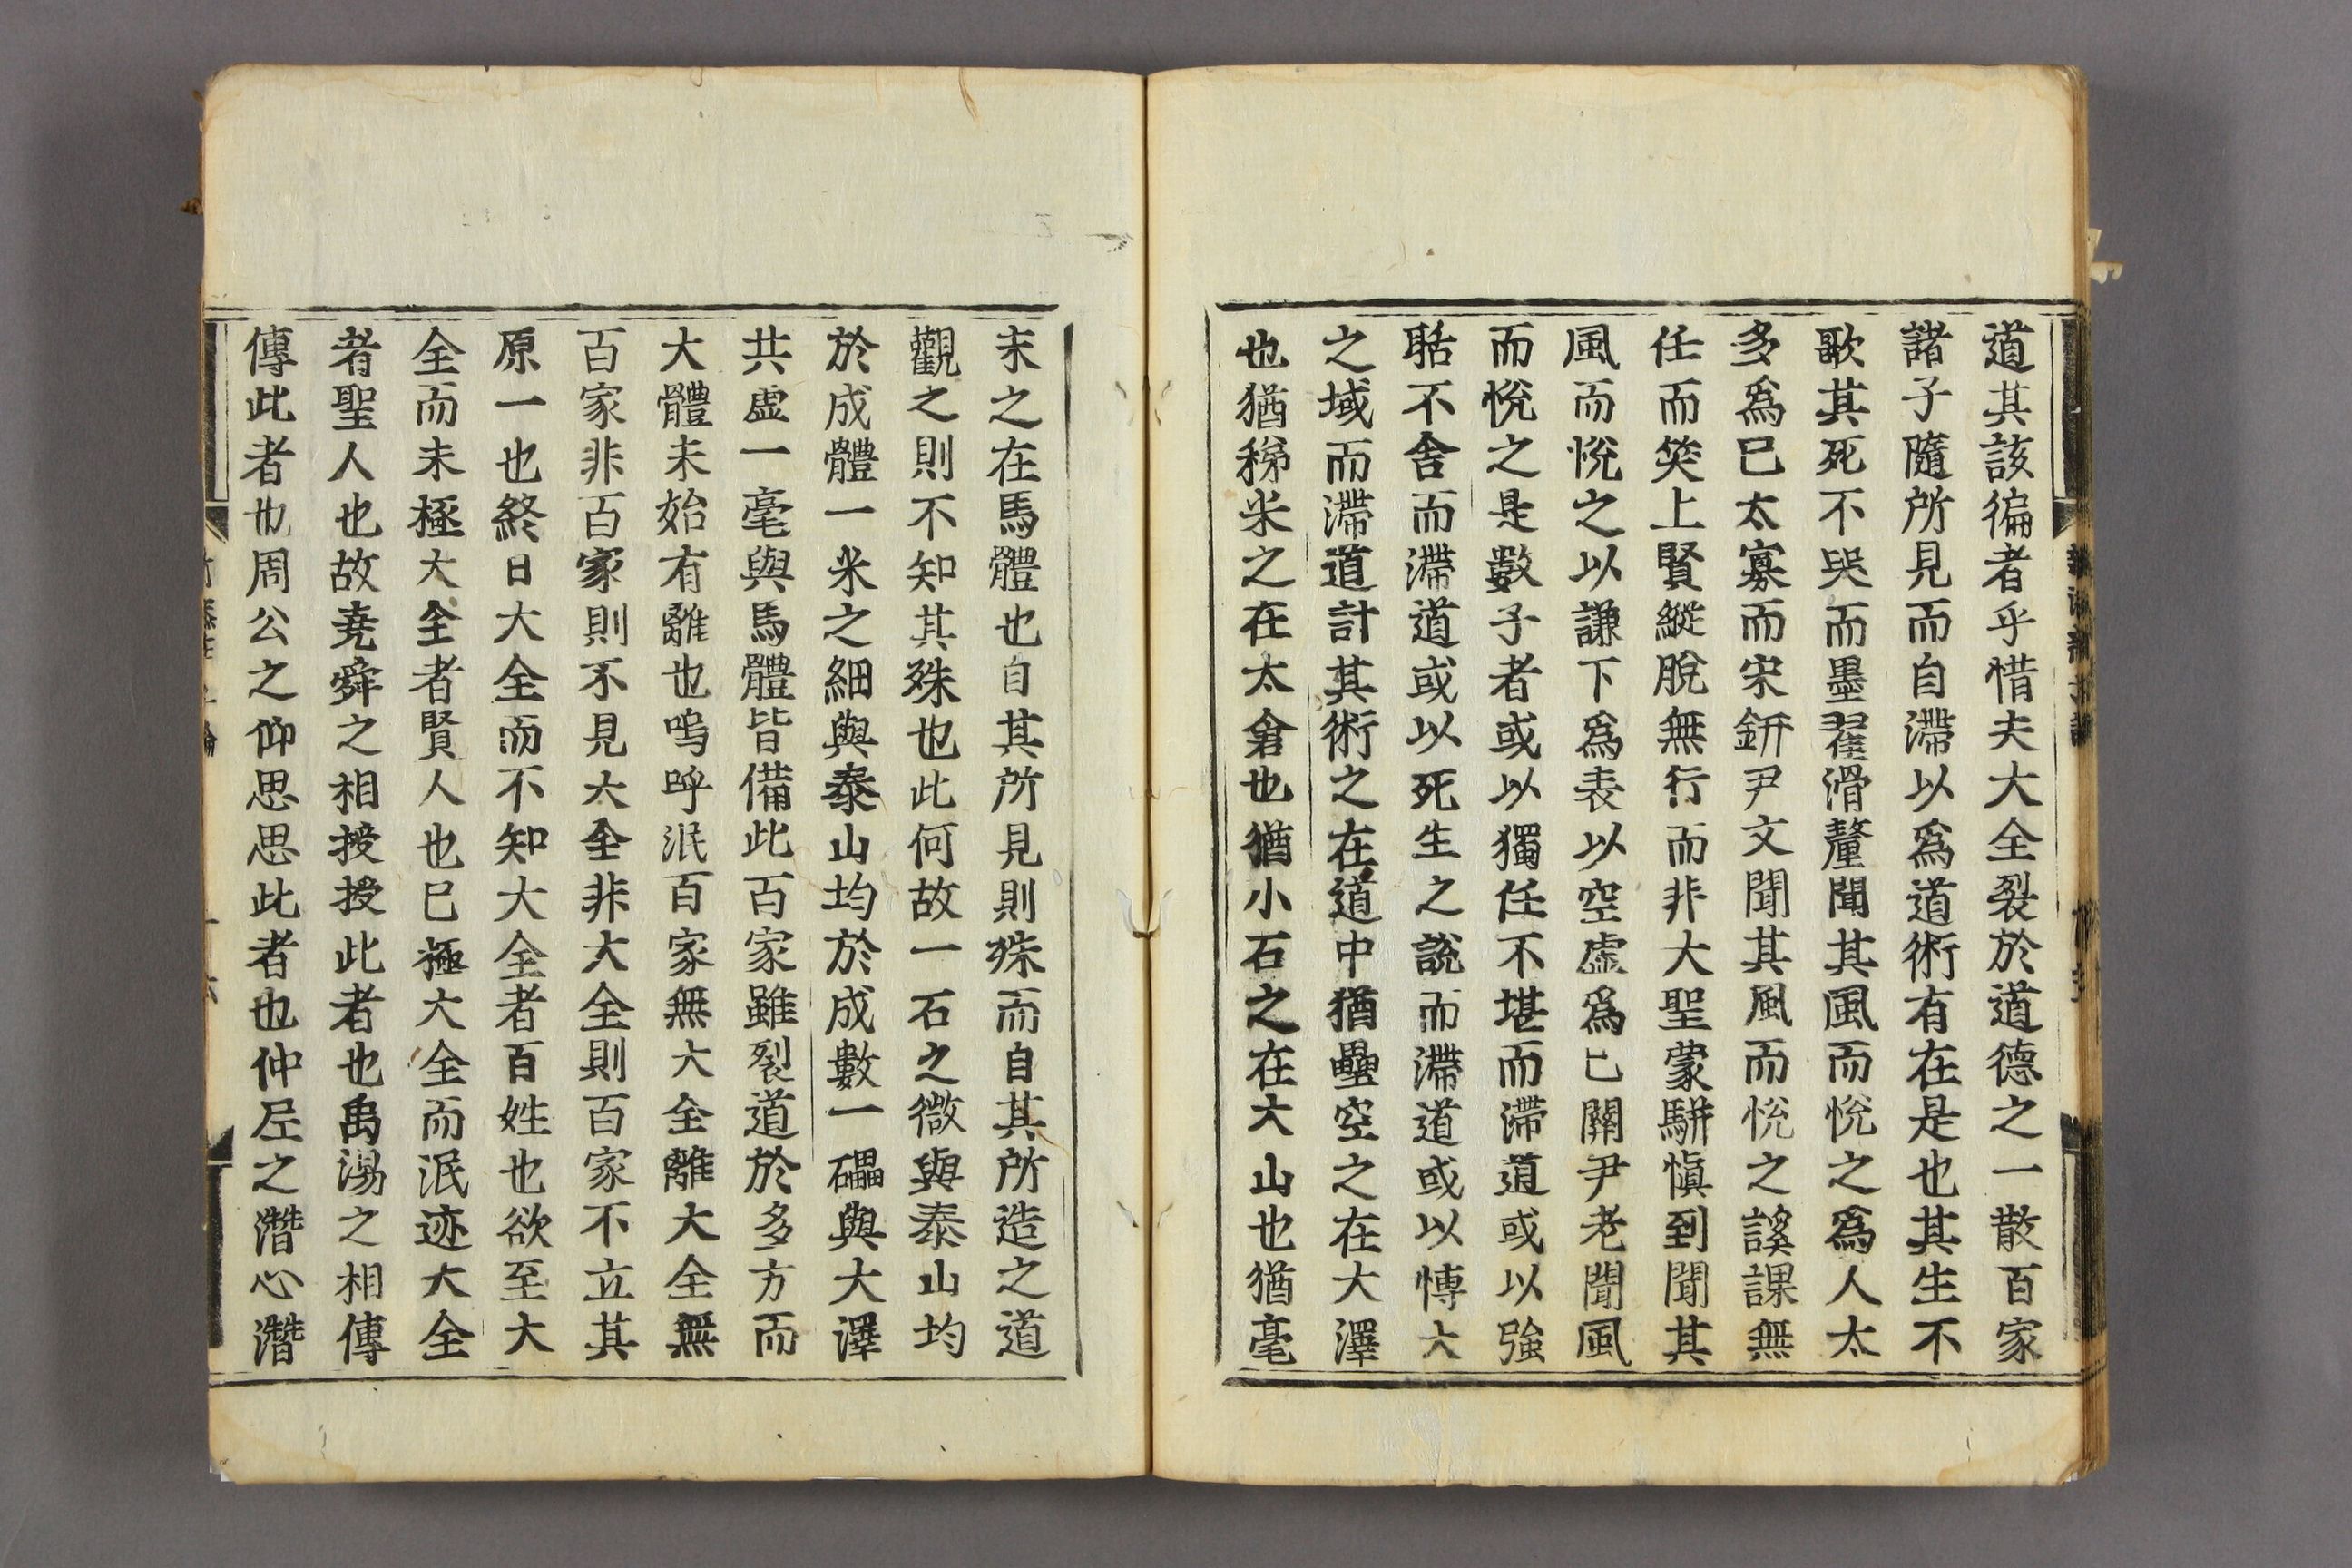 道其該徧者乎惜夫大全裂於道德之一散百家
諸子隨所見而自滯以爲道術有在是也其生不
歌其死不哭而墨翟滑釐聞其風而悅之爲人太
多爲己太寡而宋鈃尹文聞其風而悅之謑課無
任而笑上賢縱脫無行而非大聖蒙駢愼到聞其
風而悅之以謙下爲表以空虛爲己關尹老聞風
而悅之是數子者或以獨任不堪而滯道或以強
聒不舍而滯道或以死生之說而滯道或以慱大
之域而滯道計其術之在道中猶壘空之在大澤
也猶稊米之在太倉也猶小石之在大山也猶毫
末之在馬體也自其所見則殊而自其所造之道
觀之則不知其殊也此何故一石之微與泰山均
於成體一米之細與泰山均於成數一礨與大澤
共虛一毫與馬體皆備此百家雖裂道於多方而
大體未始有離也嗚呼泯百家無大全離大全無
百家非百家則不見大全非大全則百家不立其
原一也終日大全而不知大全者百姓也欲至大
全而未極大全者賢人也已極大全而泯迹大全
者聖人也故堯舜之相授授此者也禹湯之相傳
傳此者也周公之仰思思此者也仲尼之潛心潛